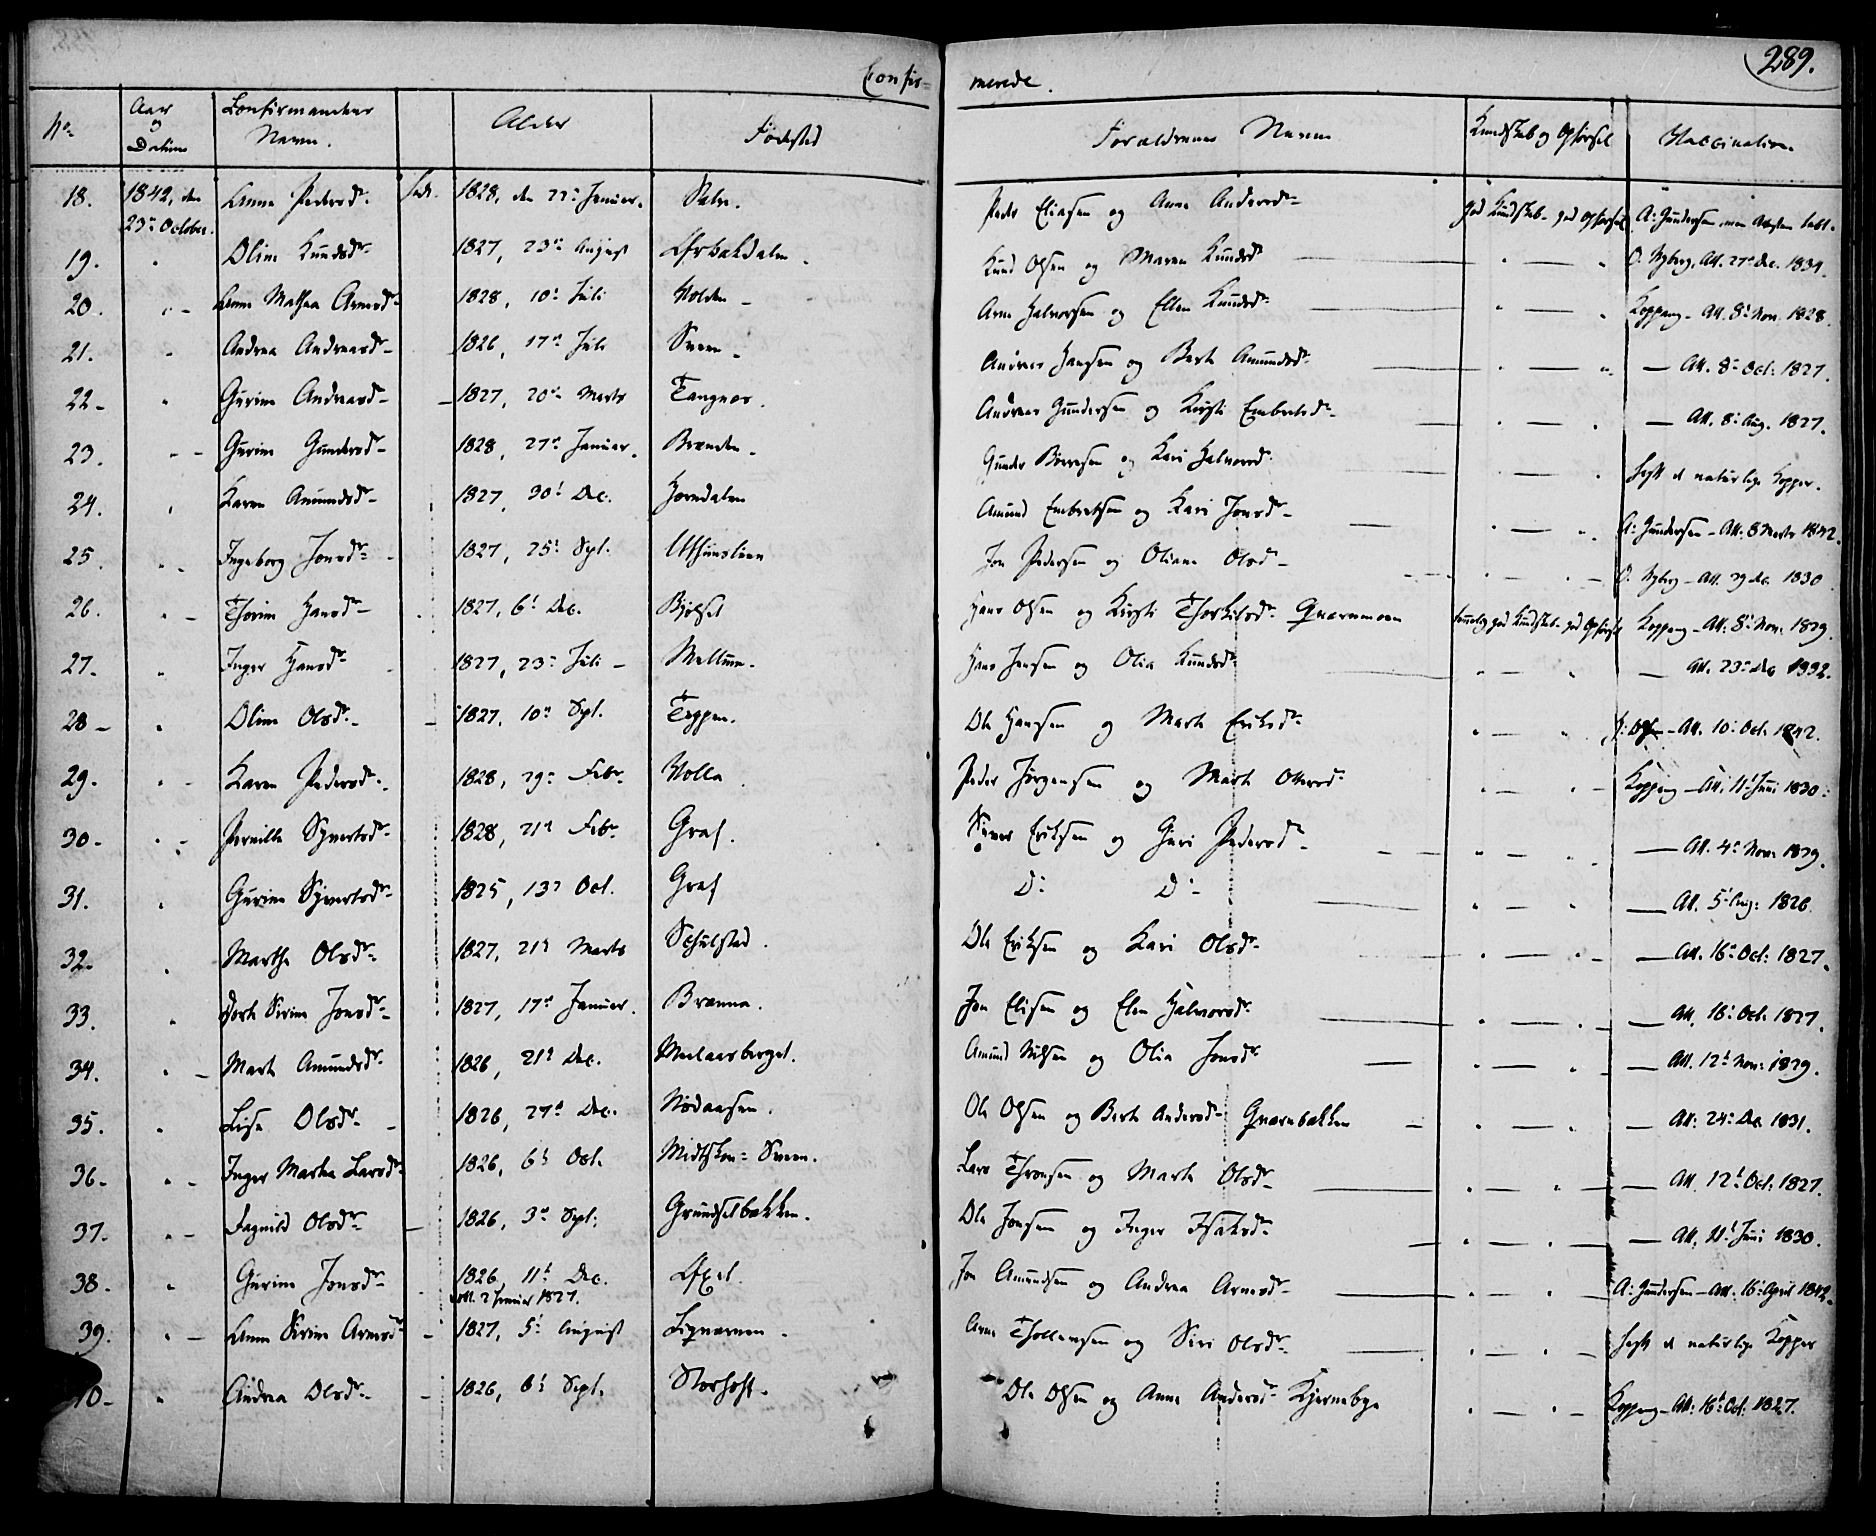 289.
Confir- merede.
No Aar og Datum Confirmandens Navn. Alder Fødested Forældrenes Navne Kundskab og Opførsel Vaccination
18. 1842, den 23de October. Anna Pedersdr. 1828, den 22de Januar. Peder Eliasen og Anne Andersdr god Kundskab - god Opførsel A: Gundersen
19. Oline Knudsdr 1827, 23de August Ørbækdalen. Knud Olsen og Maren Knudsdr O. Nyberg, Att. 27de Dec. 1834.
20. Anne Mathea Arnesdr 1828, 10de Juli Volden Arne Halvorsen og Ellen Knudsdr Koppang - Att. 8de Nov. 1828.
21. Andrea Andreasdr 1826, 17de Juli Sveen Andreas Hansen og Berte Amundsdr — Att. 8de Oct. 1827.
22 Gurine Andreasdr 1827, 20de Marts Tangnes. Andreas Gundersen og Kirsti Embretsdr — Att. 8de Aug. 1827.
23. Gurine Gundersdr 1828, 27de Januar. Brænden. Gunder Børresen og Kari Halvorsdr havt de naturlige Kopper.
24. Karen Amundsdr 1827, 30te Dec. Horndalen Amund Embretsen og Kari Jonsdr A: Gundersen - Att. 8 Marts 1842.
25. Ingeborg Jonsdr 1827, 25de Spt. Jon Pedersen og Oliane Olsd O. Nyberg - Att. 29 Dec. 1830
26. Thorine Hansdr 1827, 6te Dec. Bjølset Hans Olsen og Kirsti Thorkilsdr Qværnmoen temmelig god Kundskab - god Opførsel Koppang - Att. 8de Nov. 1829.
27. Inger Hansdr 1827, 23de Juli Mellum. Hans Jensen og Olia Knudsdr — Att. 23de Dec 1832.
28 Oline Olsdr 1827, 10de Spt. Teppen. Ole Hansen og Marte Eriksdr Att. 10de Oct. 1842.
29. Karen Pedersdr 1828, 29de Febr. Volla Peder Jørgensen og Marte Ottersdr Koppang - Att. 11te Juni 1830.
30. Pernille Syversdr 1828, 21de Febr. Graf. Siver Eriksen og Guri Pedersdr — Att. 4de Nov. 1829.
31. Gurine Syversdr 1825, 13de Oct. Graf Do Do — Att. 5te Aug: 1826.
32. Marthe Olsdr 1827, 21de Marts Schulstad. Ole Eriksen og Kari Olsdr — Att. 16de Oct: 1827.
33. Dorte Sirine Jonsdr 1827, 17de Januar. Brænna. Jon Elisen og Elen Halvorsdr — Att. 16de Oct. 1827.
34. Marte Amundsdr 1826, 21de Dec. Meelaasberget. Amund Nilsen og Olia Jonsdr — Att. 12te Nov: 1829.
35. Lise Olsdr 1826, 27de Dec. Nødaasen. Ole Olsen og Berte Andersdr Qværnbakken — Att. 24de Dec 1831.
36 Inger Marthea Larsdr 1826, 6te Oct. Midtskou-Sveen. Lars Thronsen og Marte Olsdr — Att. 12te Oct: 1827.
37. Ragnild Olsdr 1826, 3de Spt. Grundsetbakken. Ole Jonsen og Inger Isaksdr — Att. 11te Juni 1830.
38. Gurine Jonsdr 1826, 11te Dec. 2 Januar 1827. Øxet. Jon Amundsen og Andrea Arnesdr A: Gundersen - Att. 16de April 1842.
39. Anne Sirine Arnesdr 1827, 5te August Arne Thollevsen og Siri Olsdr havt de naturlige Kopper
40 Andrea Olsdr 1826, 8de Sept. Storhoft. Ole Olsen og Anne Andersdr Kjernebye Koppang - Att: 16de Oct: 1827.